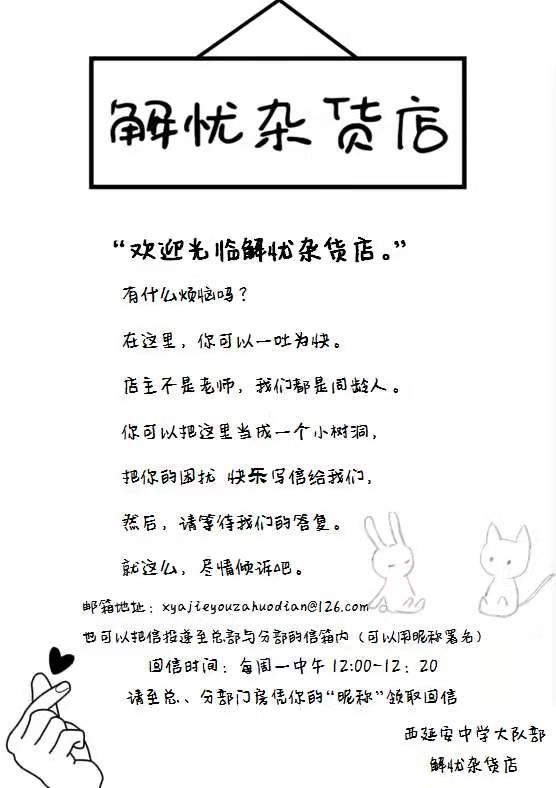 解忧杂货店
“欢迎光临解忧杂货店。”
有什么烦恼吗？
在这里，你可以一吐为快。
店主不是老师，我们都是同龄人。
你可以把这里当成一个小树洞，
把你的困扰 快乐写信给我们，
然后，请等待我们的答复。
就这么，尽情倾诉吧。
邮箱地址：xyajieyouzahuodian@126.com
也可以把信投递至总部与分部的信箱内（可以用昵称署名）
回信时间：每周一中午 12:00-12：20
请至总、分部门房凭你的“昵称”领取回信
西延安中学大队部
解忧杂货店